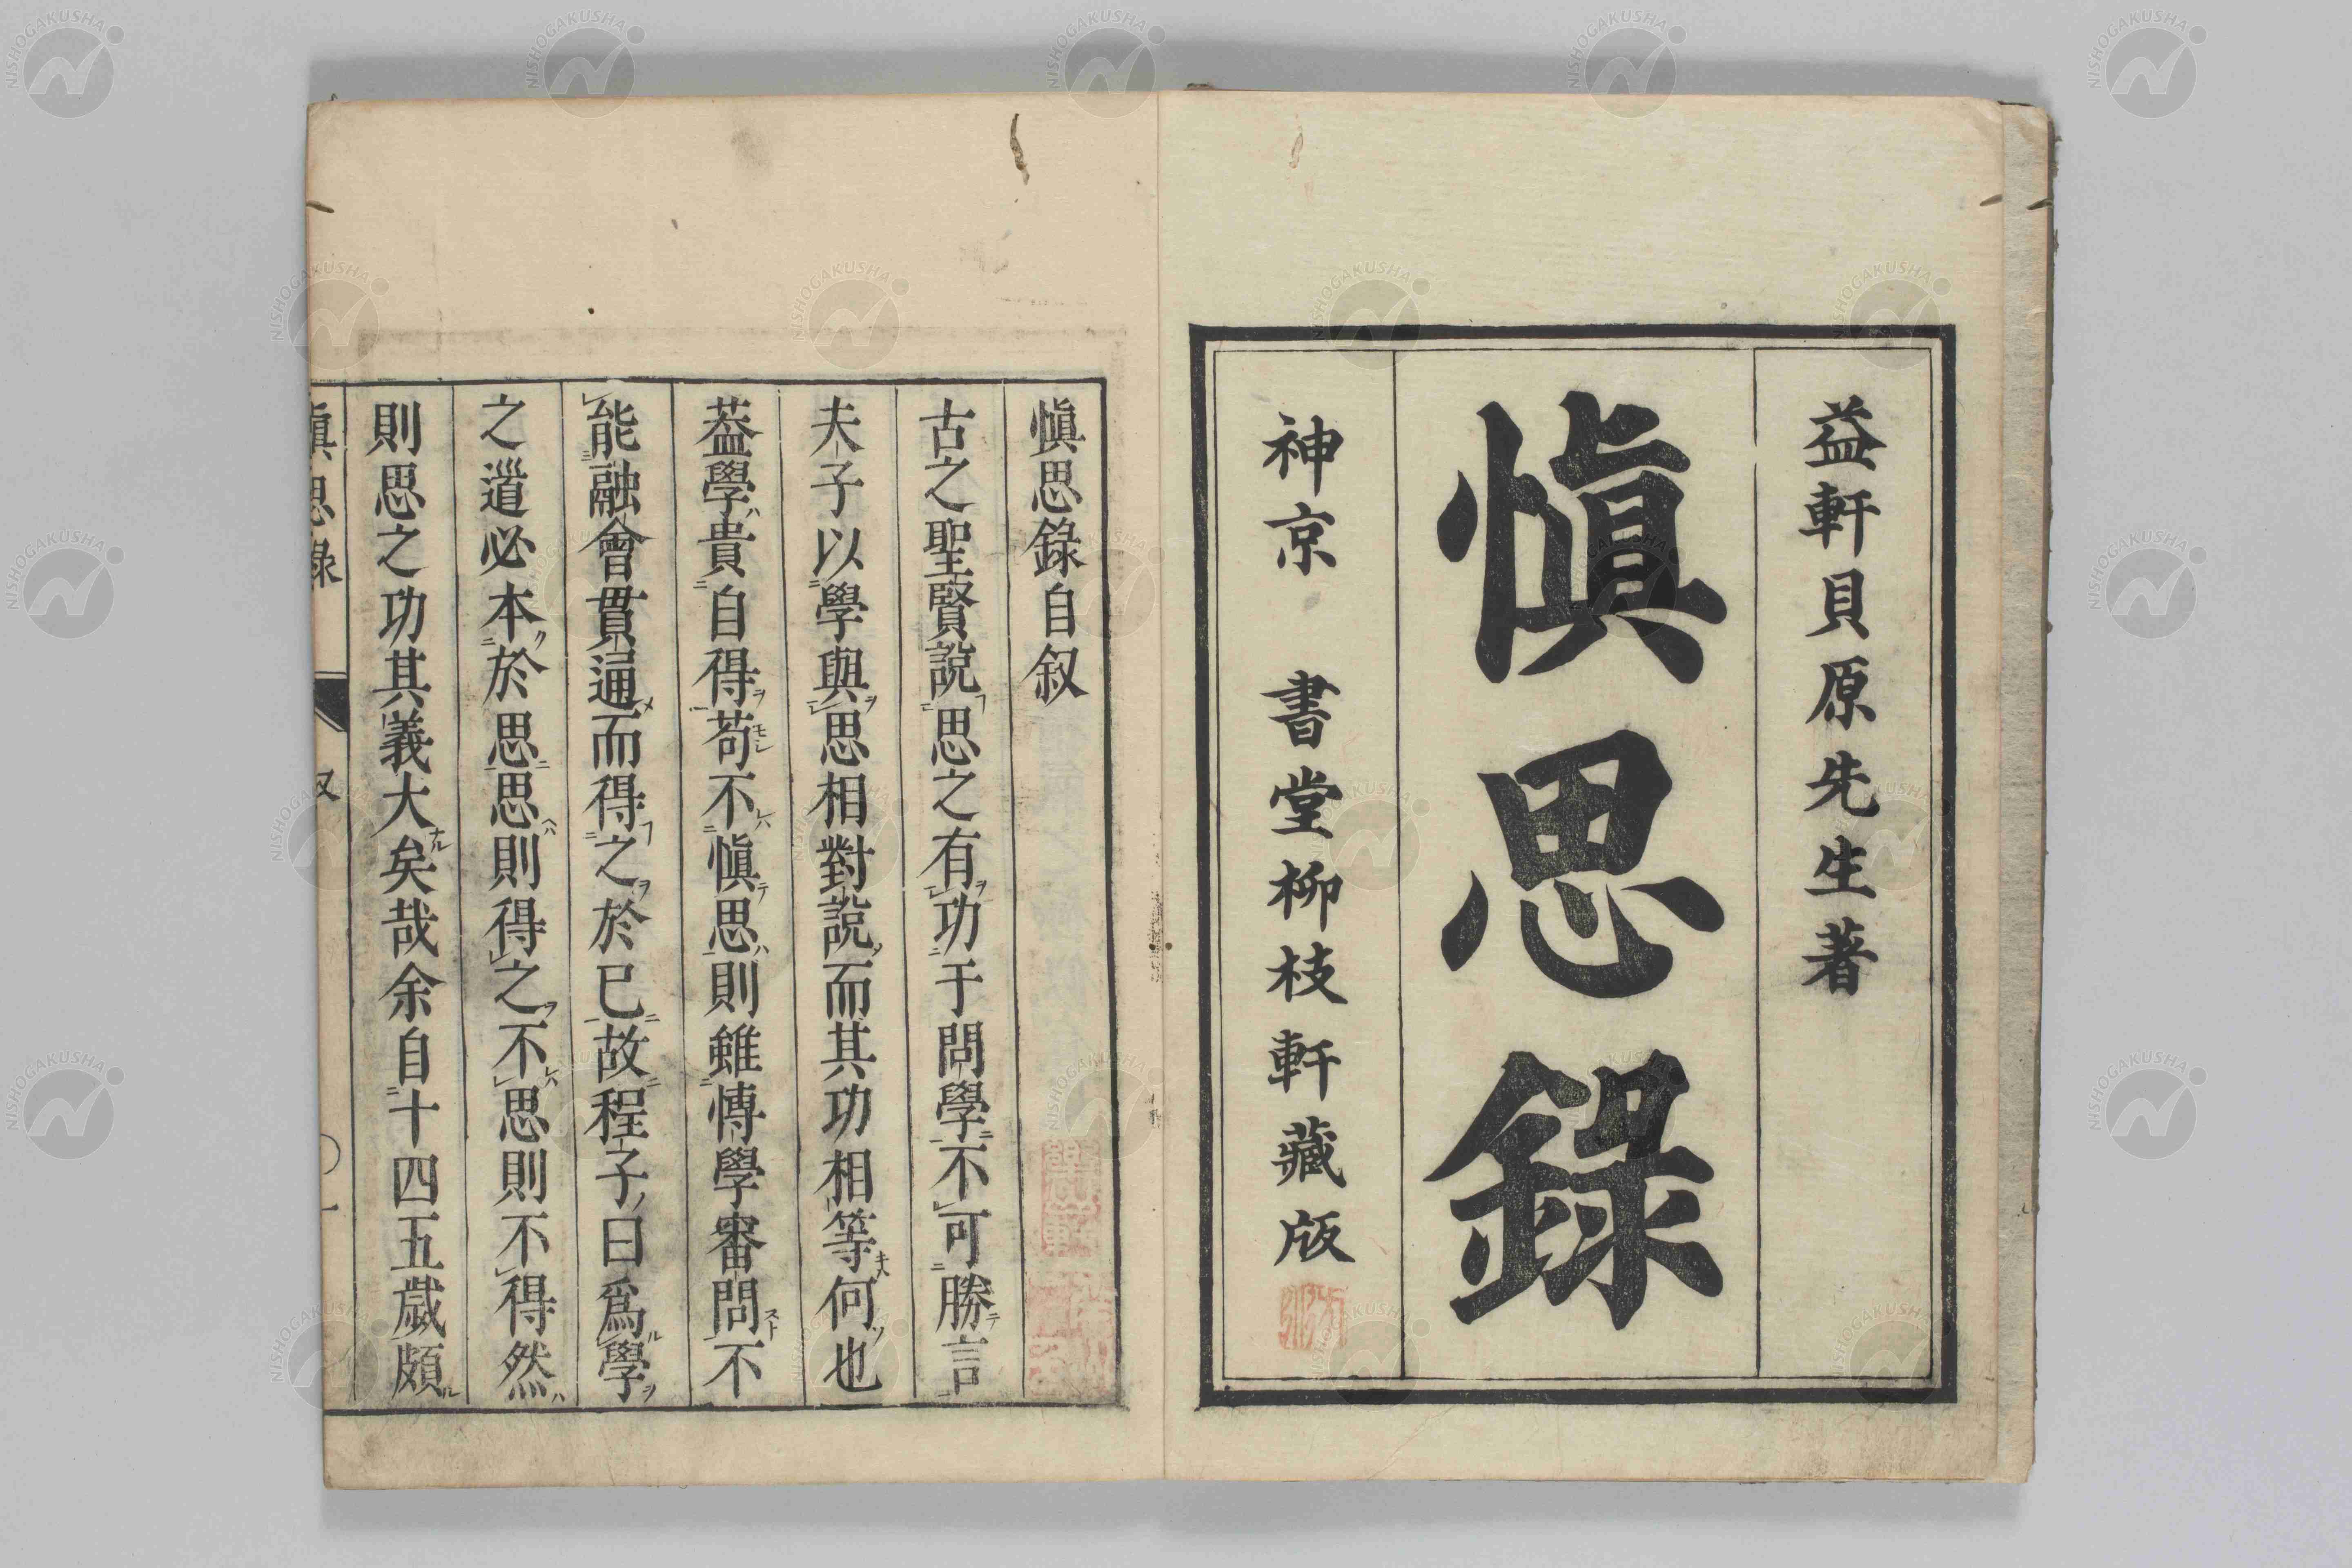 益軒貝原先生著
愼思錄
神京 書堂柳枝軒藏版
愼思錄自叙
古之聖賢說思之有功于問學不可勝言
夫子以學與思相對說而其功相等何也
葢學貴自得苟不愼思則雖博學審問不
能融會貫通而得之於己故程子曰爲學
之道必本於思思則得之不思則不得然
則思之功其義大矣哉余自十四五歲頗
愼思錄
叙
〇一
NISHOGAKUSHA